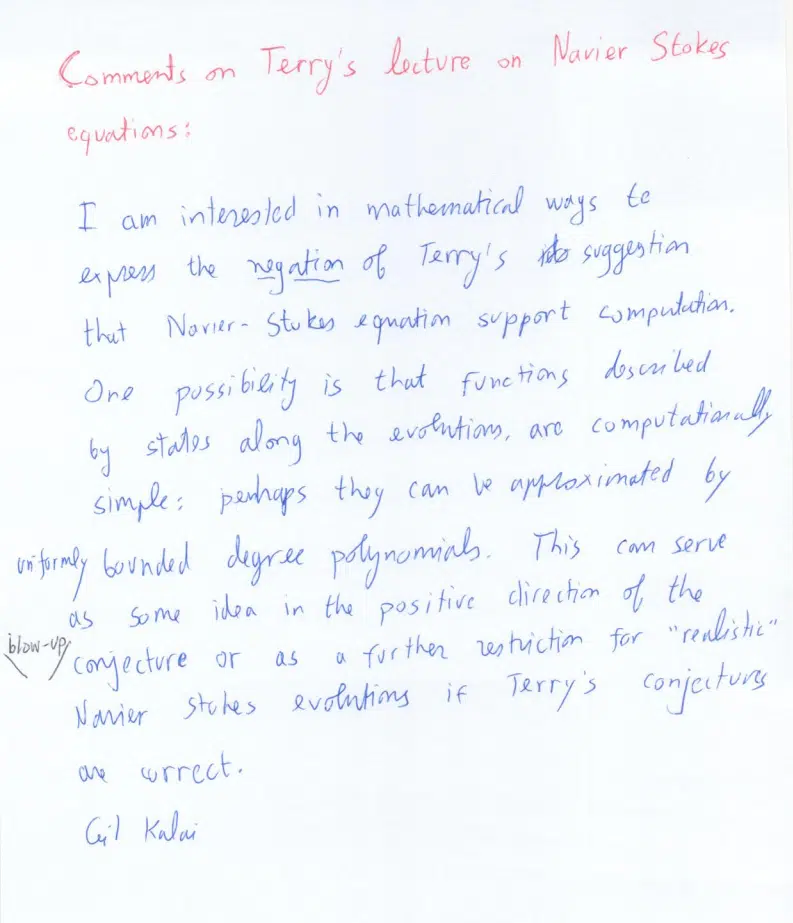 Comments on Terry's lecture on Navier Stokes
equations:
I am interested in mathematical ways to
express the negation of Terry's suggestion
that Navier-Stokes equation support computation.
One possibility is that functions described
by states along the evolutions, are computationally
simple: perhaps they can be approximated by
uniformly bounded degree polynomials. This can serve
as some idea in the positive direction of the
blow-up conjecture or as a further restriction for "realistic"
Navier Stokes evolutions if Terry's conjectures
are correct.
Gil Kalai